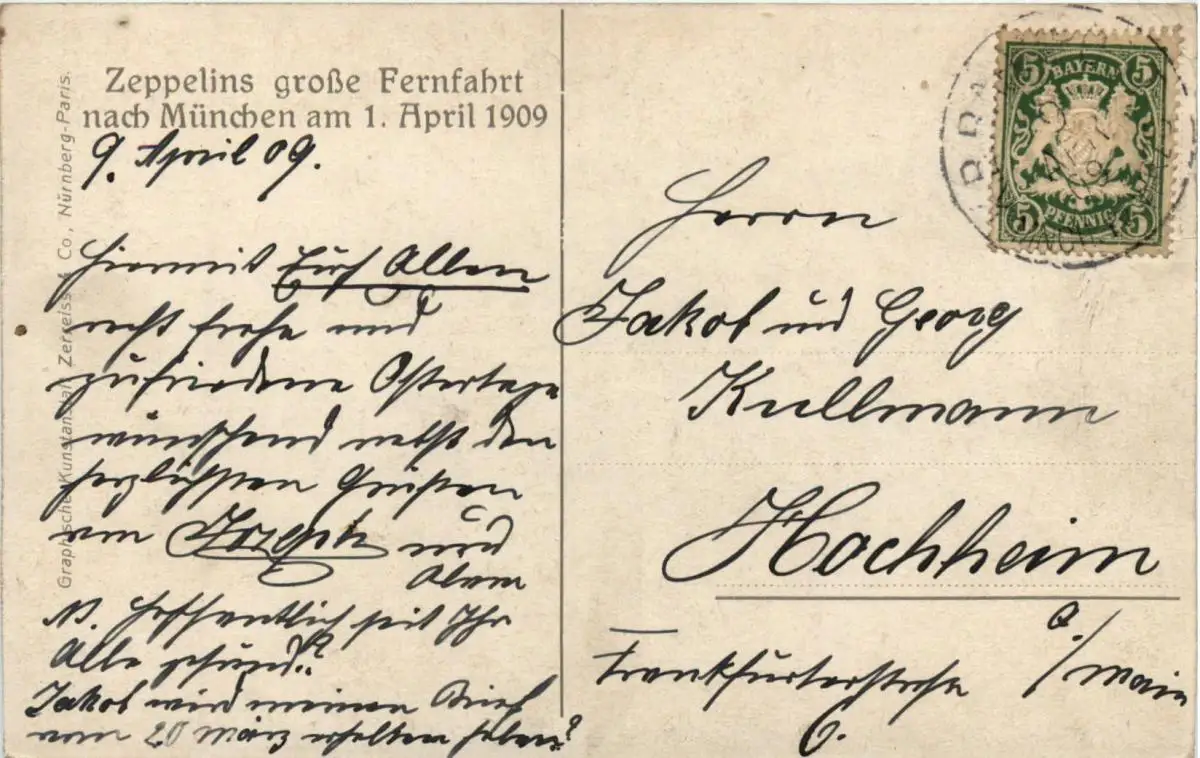 Zeppelins große Fernfahrt
nach München am 1. April 1909
9. April 09.
Hiermit Euch Allen
recht frohe und
zufriedene Ostertage
wünschend nebst den
herzlichsten Grüßen
von Joseph und
N. Hoffentlich seit Ihr
Alle gesund?
Jakob wird meinen Brief
vom 20 März erhalten haben?
Graphische Kunstanstalt Zerreiss & Co., Nürnberg-Paris.
BAYERN
5 5
5 PFENNIG 5
Herrn
Jakob und Georg
Kullmann
Hochheim
a./Main
Frankfurterstrasse
6.